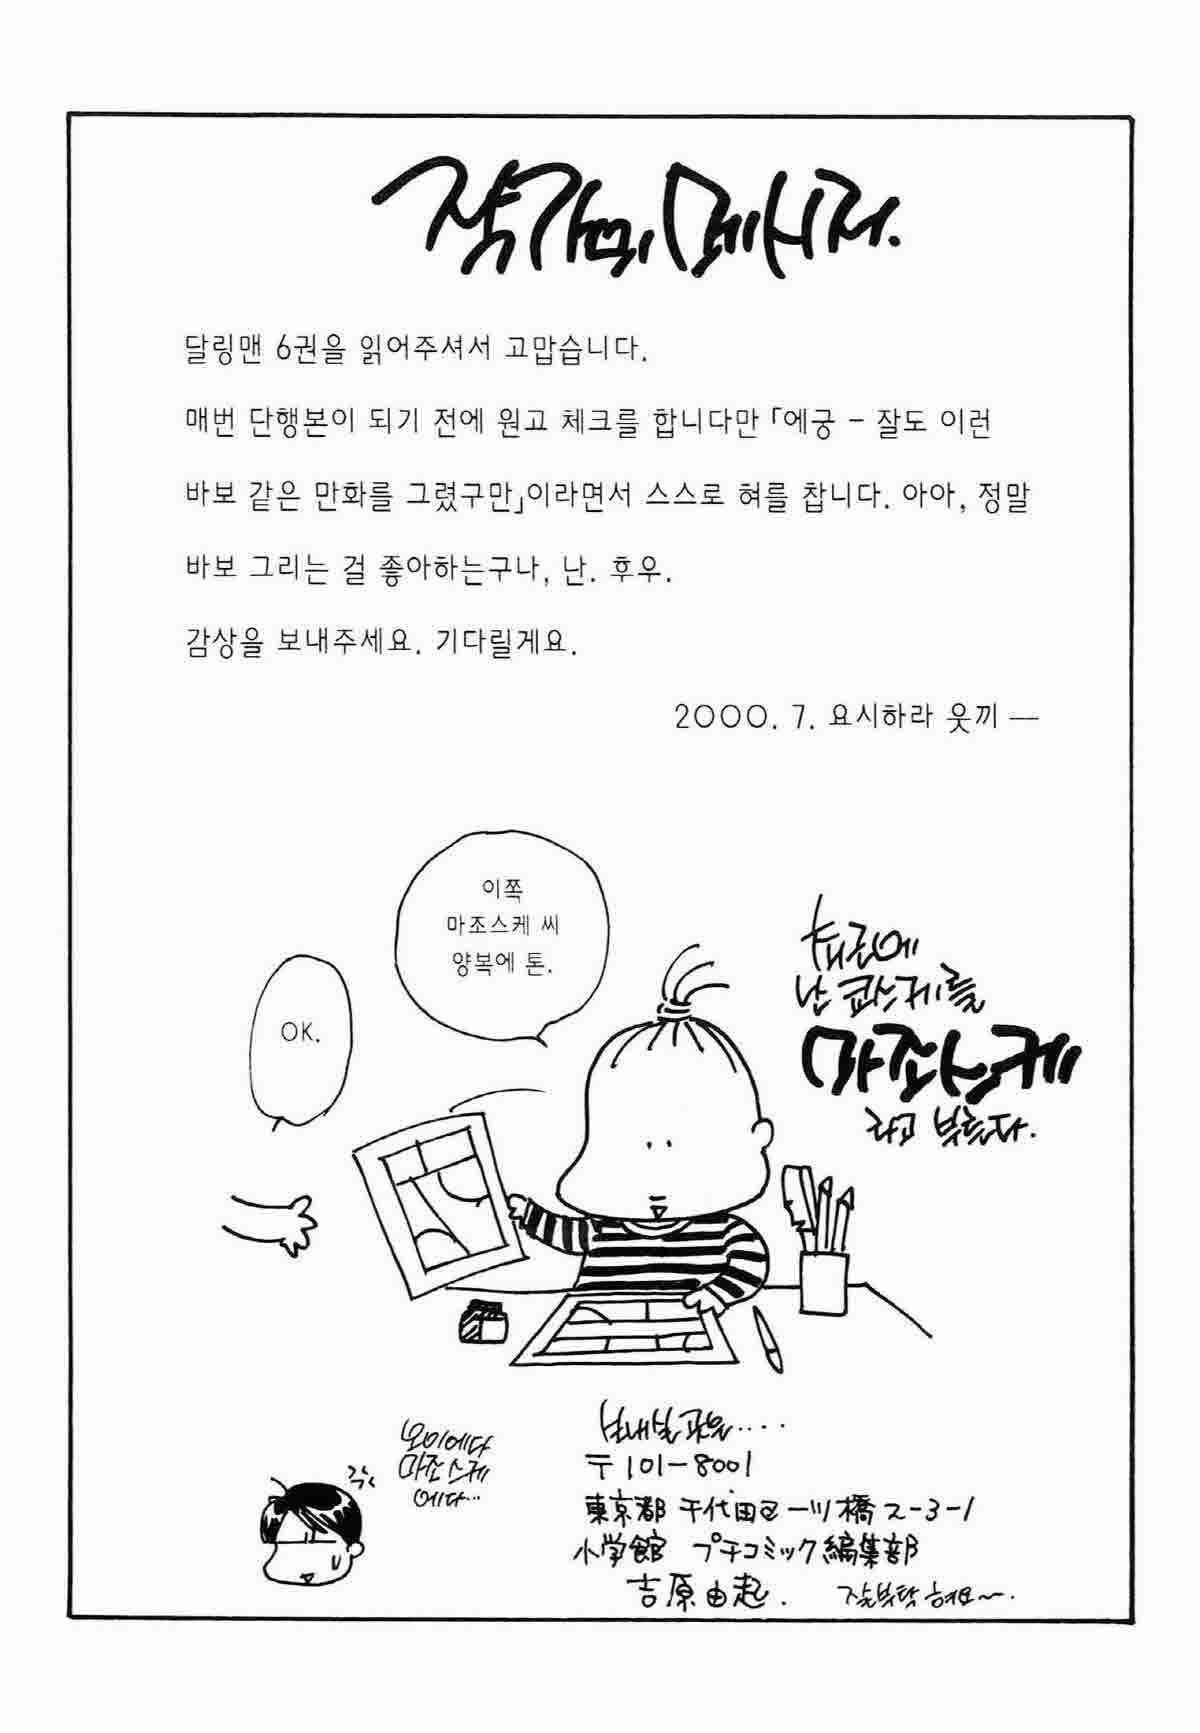 작가의 메시지.
달링맨 6권을 읽어주셔서 고맙습니다.
매번 단행본이 되기 전에 원고 체크를 합니다만 「에궁 – 잘도 이런
바보 같은 만화를 그렸구만」이라면서 스스로 혀를 찹니다. 아아, 정말
바보 그리는 걸 좋아하는구나, 난. 후우.
감상을 보내주세요. 기다릴게요.
2000. 7. 요시하라 웃끼 —
이쪽
마조스케 씨
양복에 톤.
OK.
최근에
난 쿄스케를
마조스케
라고 부른다.
보내실 곳은····
〒101-8001
東京都 千代田区一ツ橋2-3-1
小学館 プチコミック編集部
吉原由起.
마조스케